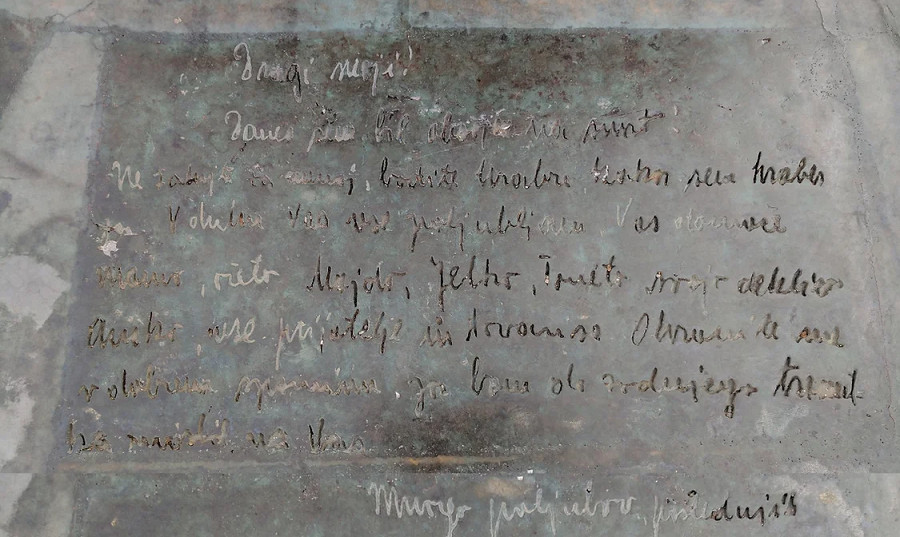 Dragi moji!
Danes sem bil obsojen na smrt!
Ne žalujte za menoj, bodite hrabri kakor sem hraber
jaz. V duhu Vas vse poljubljam, Vas domače
mamo, očeta Majdo, Jelko, Tončta svojo deklico
Ančko, vse prijatelje in tovariše Ohranite me
v dobrem spominu jaz bom do zadnjega trenut-
ka mislil na Vas
Mnogo poljubov